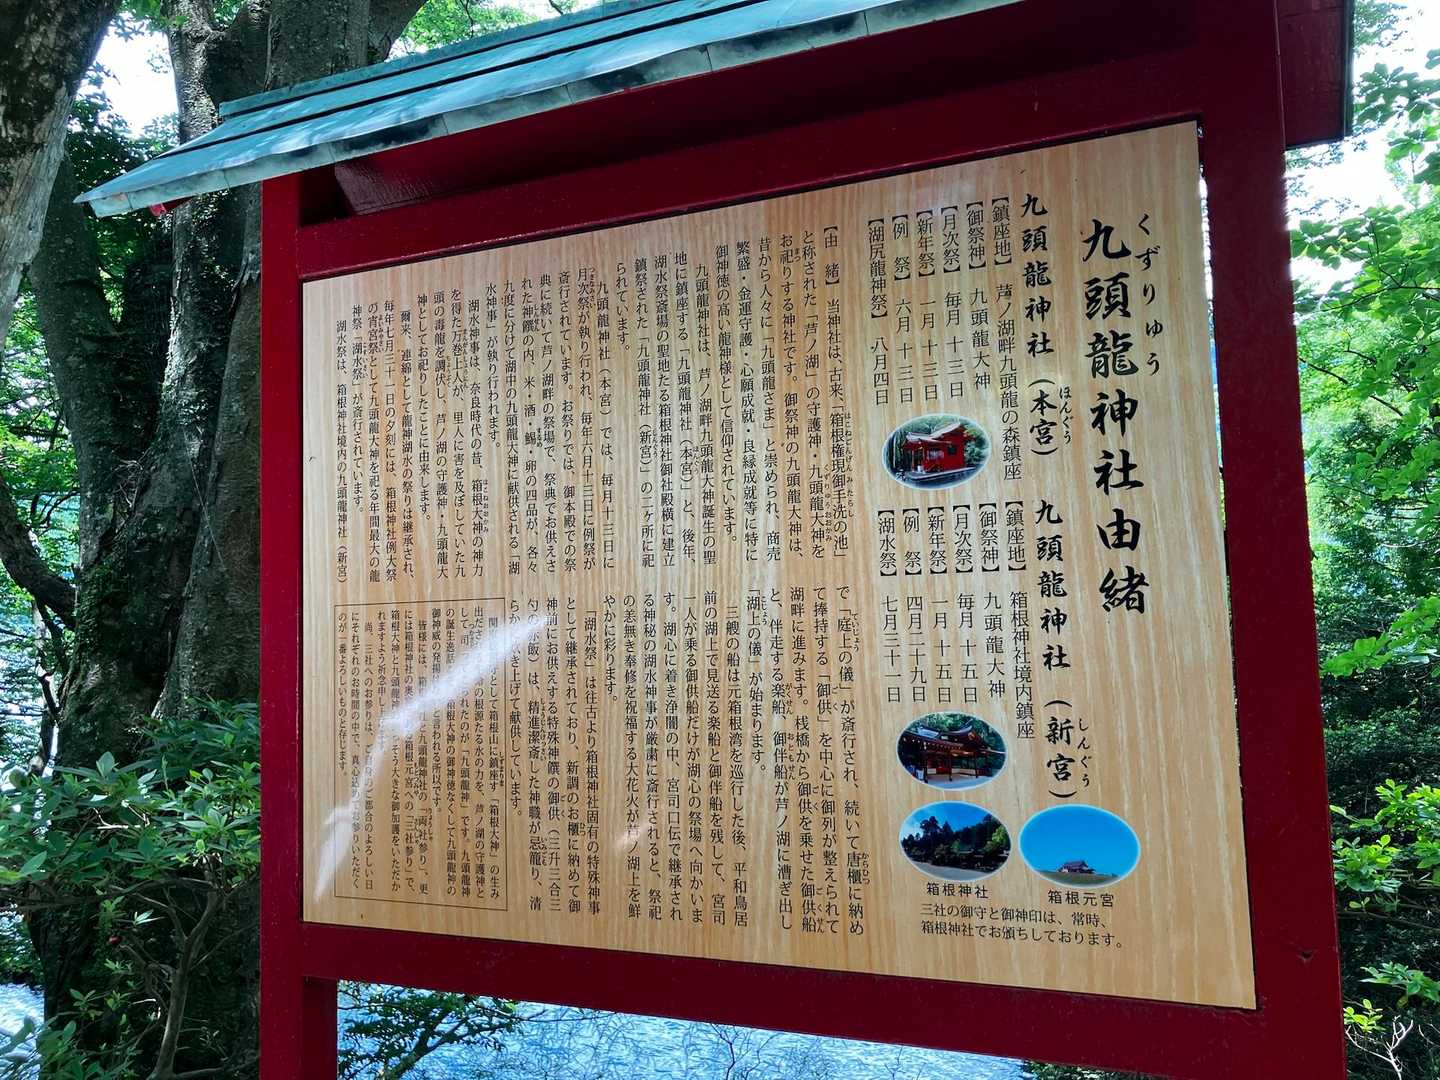 くずりゅう
九頭龍神社由緒
九頭龍神社(本宮)
ほんぐう
【鎮座地】 芦ノ湖畔九頭龍の森鎮座
【御祭神】 九頭龍大神
【月次祭】 毎月 十三日
【新年祭】 一月 十三日
【例 祭】 六月 十三日
【湖尻龍神祭】 八月四日
九頭龍神社(新宮)
しんぐう
【鎮座地】 箱根神社境内鎮座
【御祭神】 九頭龍大神
【月次祭】 毎月 十五日
【新年祭】 一月 十五日
【例 祭】 四月二十九日
【湖水祭】 七月三十一日
【由 緒】 当神社は、古来、「箱根権現御手洗の池」
と称された「芦ノ湖」の守護神・九頭龍大神を
お祀りする神社です。御祭神の九頭龍大神は、
昔から人々に「九頭龍さま」と崇められ、商売
繁盛・金運守護・心願成就・良縁成就等に特に
御神徳の高い龍神様として信仰されています。
九頭龍神社は、芦ノ湖畔九頭龍大神誕生の聖
地に鎮座する「九頭龍神社(本宮)」と、後年、
湖水祭斎場の聖地たる箱根神社御社殿横に建立
鎮祭された「九頭龍神社(新宮)」の二ヶ所に祀
られています。
九頭龍神社(本宮)では、毎月十三日に
月次祭が執り行われ、毎年六月十三日に例祭が
斎行されています。お祭りでは、御本殿での祭
典に続いて芦ノ湖畔の祭場で、祭典でお供えさ
れた神饌の内、米・酒・鯣・卵の四品が、各々
九度に分けて湖中の九頭龍大神に献供される「湖
水神事」が執り行われます。
湖水神事は、奈良時代の昔、箱根大神の神力
を得た万巻上人が、里人に害を及ぼしていた九
頭の毒龍を調伏し、芦ノ湖の守護神・九頭龍大
神としてお祀りしたことに由来します。
爾来、連綿として龍神湖水の祭りは継承され、
毎年七月三十一日の夕刻には、箱根神社例大祭
の宵宮祭として九頭龍大神を祀る年間最大の龍
神祭「湖水祭」が斎行されています。
湖水祭は、箱根神社境内の九頭龍神社(新宮)
で「庭上の儀」が斎行され、続いて唐櫃に納め
て捧持する「御供」を中心に御列が整えられて
湖畔に進みます。桟橋から御供を乗せた御供船
と、伴走する楽船、御伴船が芦ノ湖に漕ぎ出し
「湖上の儀」が始まります。
三艘の船は元箱根湾を巡行した後、平和鳥居
前の湖上で見送る楽船と御伴船を残して、宮司
一人が乗る御供船だけが湖心の祭場へ向かいま
す。湖心に着き浄闇の中、宮司口伝で継承され
る神秘の湖水神事が厳粛に斎行されると、祭祀
の恙無き奉修を祝福する大花火が芦ノ湖上を鮮
やかに彩ります。
「湖水祭」は往古より箱根神社固有の特殊神事
として継承されており、新調のお櫃に納めて御
神前にお供えする特殊神饌の御供(三升三合三
勺の赤飯)は、精進潔斎した神職が忌籠り、清
らかに炊き上げて献供しています。
出ださ 湖の根源たる水の力を、芦ノ湖の守護神と
の誕生逸話
御神威の発揚 と言われる所以です。
尚、三社へのお参りは、ご自身のご都合のよろしい日
にそれぞれのお時間の中で、真心込めてお参りいただく
のが一番よろしいものと存じます。
箱根神社
箱根元宮
三社の御守と御神印は、常時、
箱根神社でお頒ちしております。